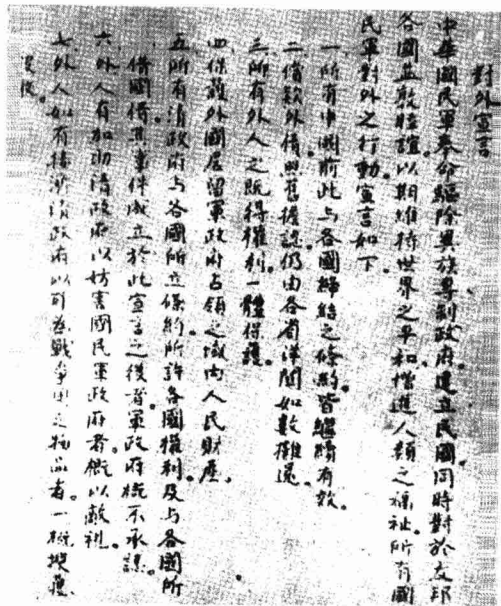 對外宣言
中華國民軍奉命驅除異族專制政府建立民國同時對於友邦
各國益敦睦誼以期維持世界之平和增進人類之福祉所有國
民軍對外之行動宣言如下。
一所有中國前此与各國締結之條約皆繼續有效。
二償款外債照舊擔認仍由各省洋關如數攤還。
三所有外人之既得權利一體保護。
四保護外國居留軍政府占領之域內人民財產。
五所有清政府与各國所立條約所許各國權利及与各國所
借國債其事件成立於此宣言之後者軍政府概不承認。
六外人有加助清政府以妨害國民軍政府者概以敵視。
七外人如有接濟清政府以可為戰爭用之物品者一概搜獲
沒收。